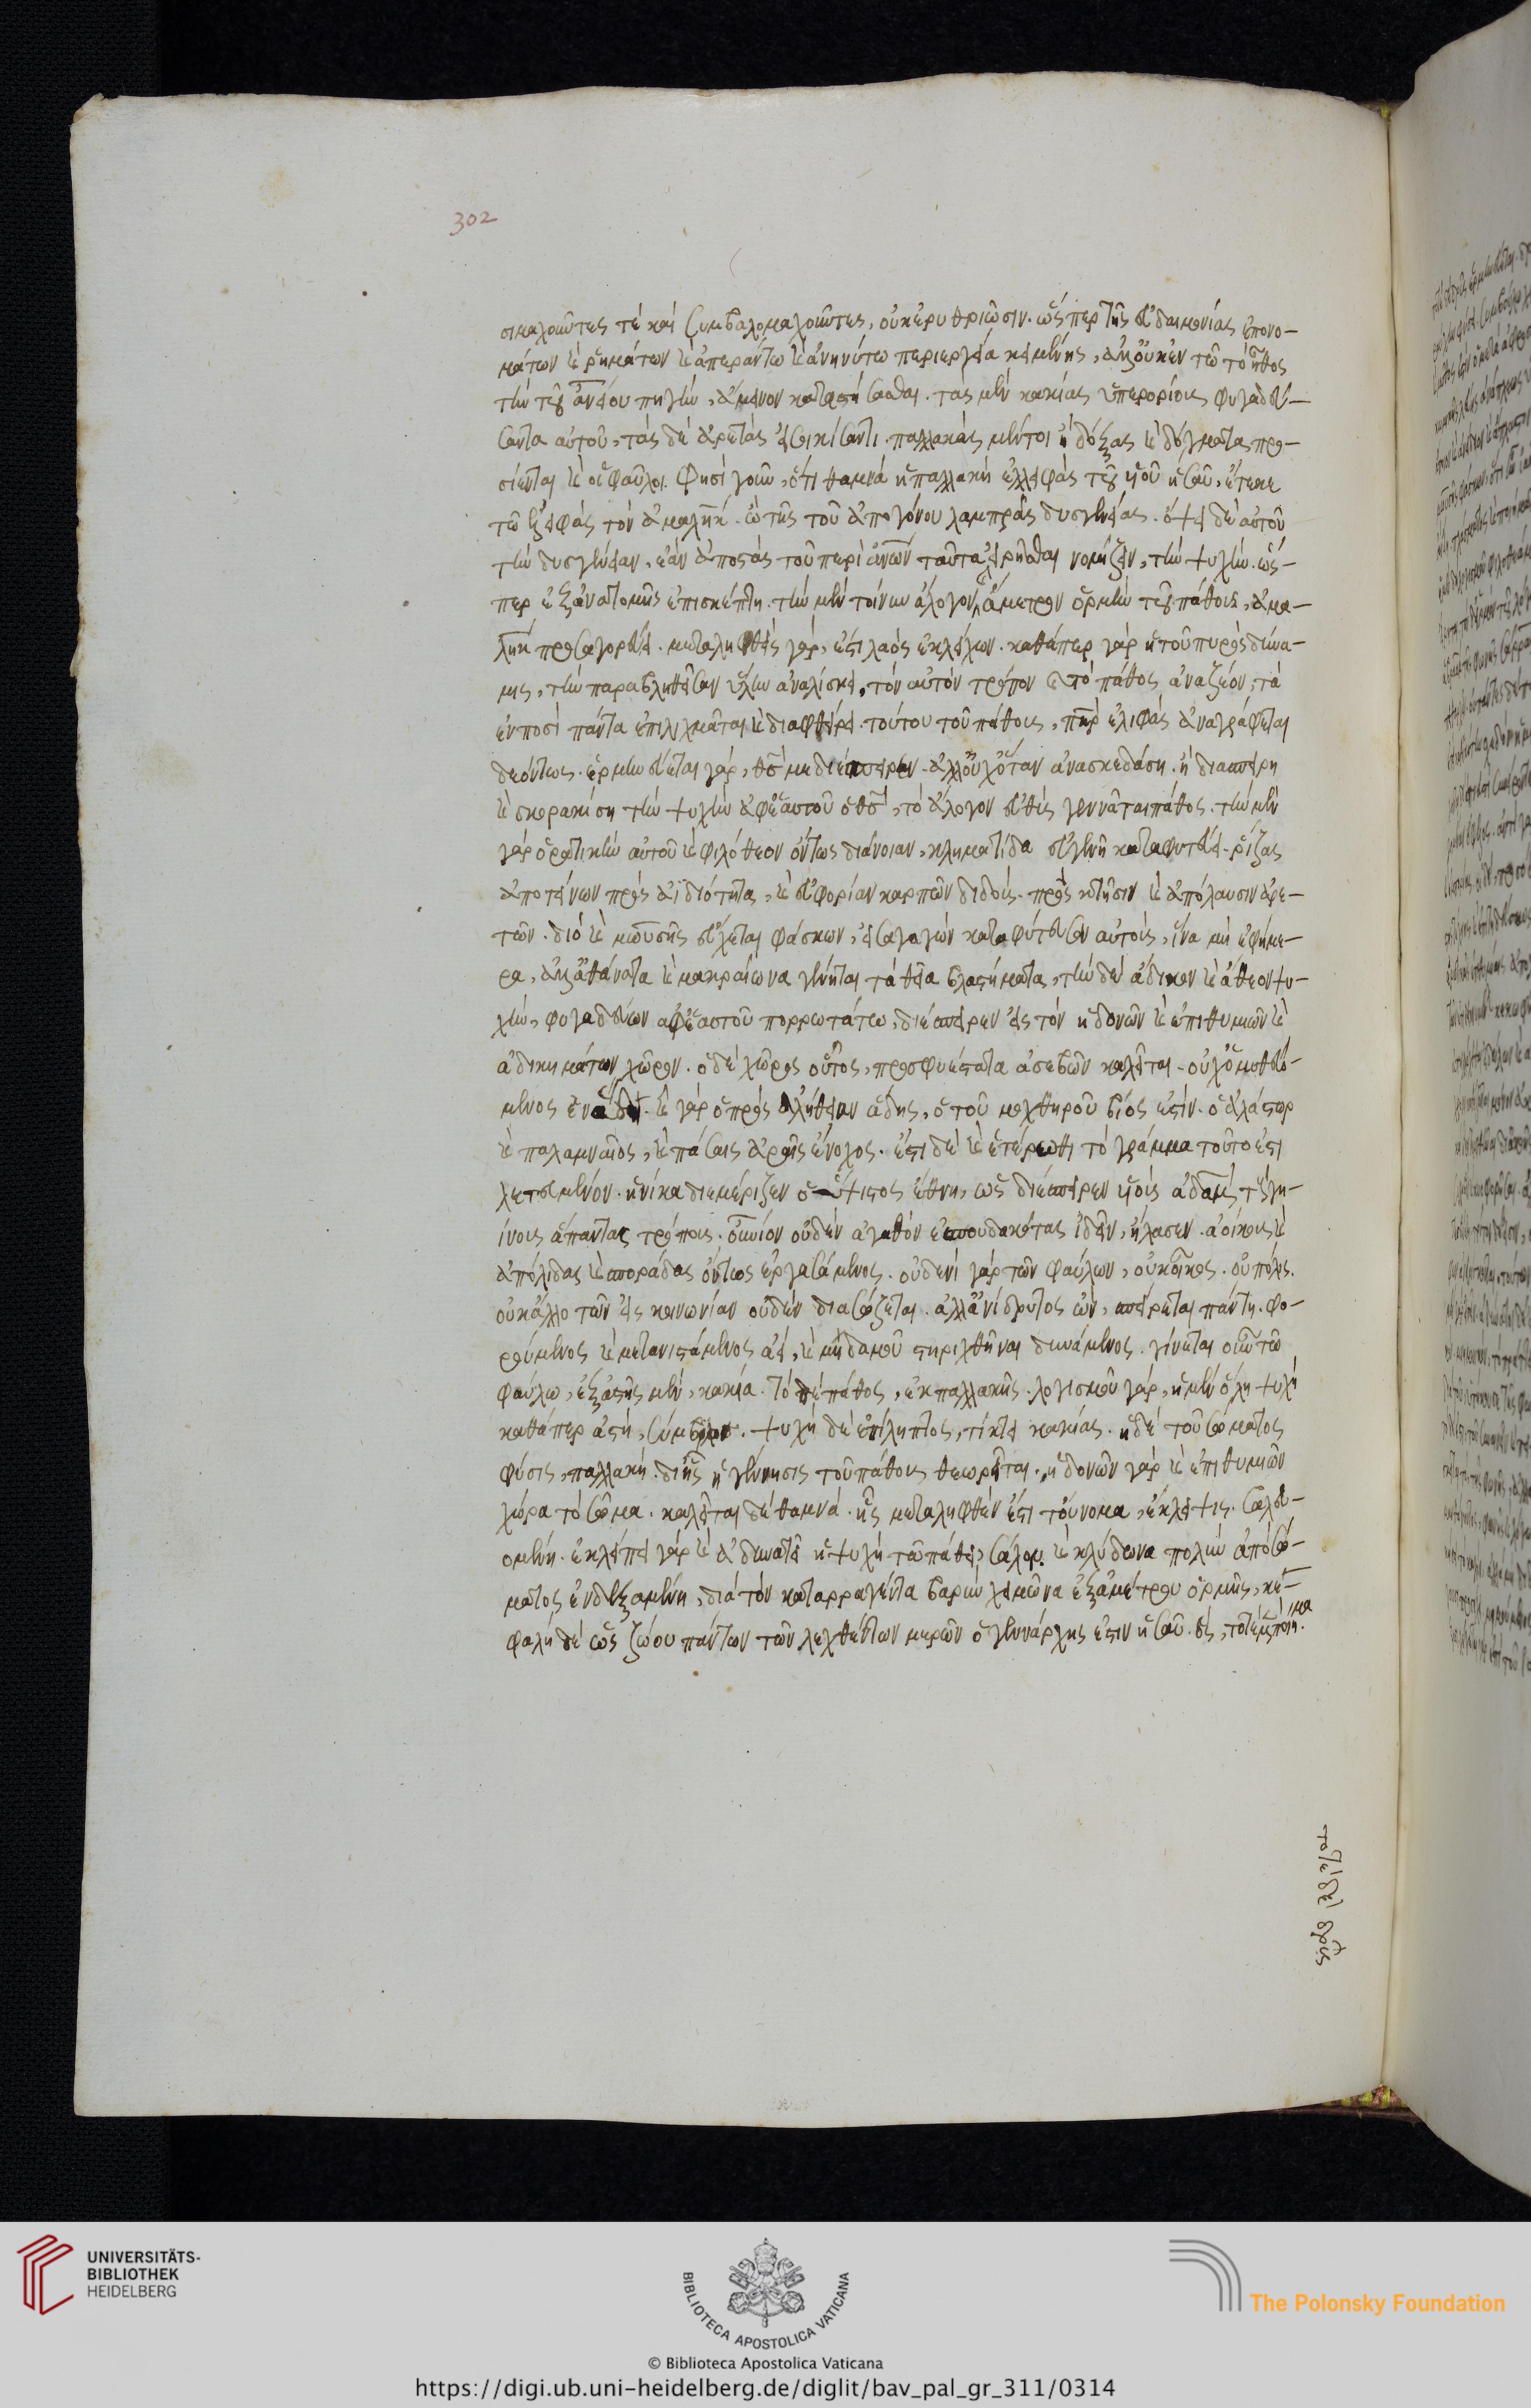 302
σιμαχοῦντες τέ καὶ συμβαλομαχοῦντες, οὐκ ἐρυθριῶσιν. ὥσπερ τῆς εὐδαιμονίας ἐπ' ονο-
μάτων καὶ ρημάτων καὶ ἀπεράντω καὶ ἀνηνύτω περιεργεία κειμένης, ἀλλ' οὐκ ἐν τῶ τὸ ἦθος
τὴν τοῦ ἀνείου πηγὴν, ἄμεινον καταστήσασθαι. τὰς μὲν κακίας ὑπερορίοις φυγαδεύ-
σαντα αὐτοῦ, τὰς δὲ ἀρετὰς εἰσοικίσαντι. παλλακὰς μέντοι ἢ δόξας καὶ δόγματα προ-
σίενται καὶ οἱ φαῦλοι. φησὶ γοῦν, ὅτι θαμνά ἡ παλλακὴ ἐλλειφὰς τοῦ υἱοῦ ἡσαῦ, ἔτεκε
τῶ ἐλειφὰς τὸν ἀμαλήκ. ὢ τῆς τοῦ ἀπογόνου λαμπρᾶς δυσγενείας. ὄψει δὲ αὐτοῦ
τὴν δυσγένειαν, ἐὰν ἀποστὰς τοῦ περὶ ἀνων ταῦτα εἰρῆσθαι νομίζειν, τὴν ψυχὴν ὥσ-
περ ἐξ ἀνατομῆς ἐπισκέπτη. τὴν μὲν τοίνυν ἄλογον καὶ ἄμετρον ὁρμὴν τοῦ πάθους, ἀμα-
λὴκ προσαγορεύει. μεταληφθεὶς γὰρ, ἐστὶ λαὸς ἐκλείχων. καθάπερ γὰρ ἡ τοῦ πυρὸς δύνα-
μις, τὴν παραβληθεῖσαν ὕλην ἀναλίσκει, τὸν αὐτὸν τρόπον καὶ τὸ πάθος ἀναζέον, τὰ
ἐν ποσὶ πάντα ἐπιλιχμᾶται καὶ διαφθείρει. τούτου τοῦ πάθους, πὴρ ἐλιφὰς ἀναγράφεται
δεόντως. ἑρμηνεύεται γὰρ, θς με διέσπειρεν. ἀλλ' οὐχ ὅταν ἀνασκεδάση. ἢ διασπείρη
καὶ σκορακίση τὴν ψυχὴν ἀφ' ἑαυτοῦ ὁ θς, τὸ ἄλογον εὐθὺς γεννᾶται πάθος. τὴν μὲν
γὰρ ὁρατικὴν αὐτοῦ καὶ φιλόθεον ὄντως διάνοιαν, κληματίδα εὐγενῆ καταφυτεύει. ρίζας
ἀποτείνων πρὸς ἀϊδιότητα, καὶ εὐφορίαν καρπῶν διδοὺς. πρὸς κτῆσιν καὶ ἀπόλαυσιν ἀρε-
τῶν. διὸ καὶ μωυσῆς εὔχεται φάσκων, εἰσαγαγὼν καταφύτευσον αὐτοὺς, ἵνα μὴ ἐφήμε-
ρα, ἀλλ' ἀθάνατα καὶ μακραίωνα γένηται τὰ θεῖα βλαστήματα, τὴν δὲ ἄδικον καὶ ἄθεον ψυ-
χὴν, φυγαδεύων ἀφ' ἑαυτοῦ πορρωτάτω, διέσπειρεν εἰς τὸν ἡδονῶν καὶ ἐπιθυμιῶν καὶ
ἀδικημάτων χῶρον. ὁ δὲ χῶρος οὗτος, προσφυέστατα ἀσεβῶν καλεῖται. οὐχ ὁ μυθευό-
μενος ἐν ἅδη. καὶ γὰρ ὁ πρὸς ἀλήθειαν ἅδης, ὁ τοῦ μοχθηροῦ βίος ἐστίν. ὁ ἀλάστωρ
καὶ παλαμναῖος, καὶ πάσαις ἀραῖς ἔνοχος. ἔστι δὲ καὶ ἑτέρωθι τὸ γράμμα τοῦτο ἐστη
λιτευμένον. ἡνίκα διεμέριζεν ὁ ὕψιστος ἔθνη, ὡς διέσπειρεν υἱοὺς ἀδὰμ, τοὺς γη-
ίνους ἅπαντας τρόπους. οὐράνιον οὐδὲν ἀγαθὸν ἐσπουδακότας ἰδεῖν, ἤλασεν. ἀοίκους καὶ
ἀπόλιδας καὶ σποράδας ὄντως ἐργασάμενος. οὐδενὶ γὰρ τῶν φαύλων, οὐκ οἶκος. οὐ πόλις.
οὐκ ἄλλο τῶν εἰς κοινωνίαν οὐδὲν διασώζεται. ἀλλ' ἀνίδρυτος ὢν, σπείρεται πάντη. φο-
ρούμενος καὶ μετανιστάμενος ἀεὶ, καὶ μηδαμοῦ στηριχθῆναι δυνάμενος. γίνεται οὖν τῶ
φαύλω, ἐξ ἀστῆς μὲν, κακία. τὸ δὲ πάθος, ἐκ παλλακῆς. λογισμοῦ γὰρ, ἡ μὲν ὅλη ψυχὴ
καθάπερ ἀστὴ, σύμβιος. ψυχὴ δὲ ἐπίληπτος, τίκτει κακίας. ἡ δὲ τοῦ σώματος
φύσις, παλλακή. δι' ἧς ἡ γέννησις τοῦ πάθους θεωρεῖται. ἡδονῶν γὰρ καὶ ἐπιθυμιῶν
χώρα τὸ σῶμα. καλεῖται δὲ θαμνά. ἧς μεταληφθὲν ἐστὶ τοὔνομα, ἔκλειψις. σαλευ-
ομένη. ἐκλείπει γὰρ καὶ ἀδυνατεῖ ἡ ψυχὴ τῶ πάθει, σάλον καὶ κλύδωνα πολὺν ἀπὸ σώ-
ματος ἐνδεξαμένη, διὰ τὸν καταρραγέντα βαρὺν χειμῶνα ἐξ ἀμέτρου ὁρμῆς, κε-
φαλὴ δὲ ὡς ζώου πάντων τῶν λεχθέντων μερῶν ὁ γεννάρχης ἐστὶν ἡσαῦ. ὃς, τοτὲ μὲν ποίημα
UNIVERSITÄTS-
BIBLIOTHEK
HEIDELBERG
BIBLIOTECA APOSTOLICA VATICANA
The Polonsky Foundation
© Biblioteca Apostolica Vaticana
https://digi.ub.uni-heidelberg.de/diglit/bav_pal_gr_311/0314